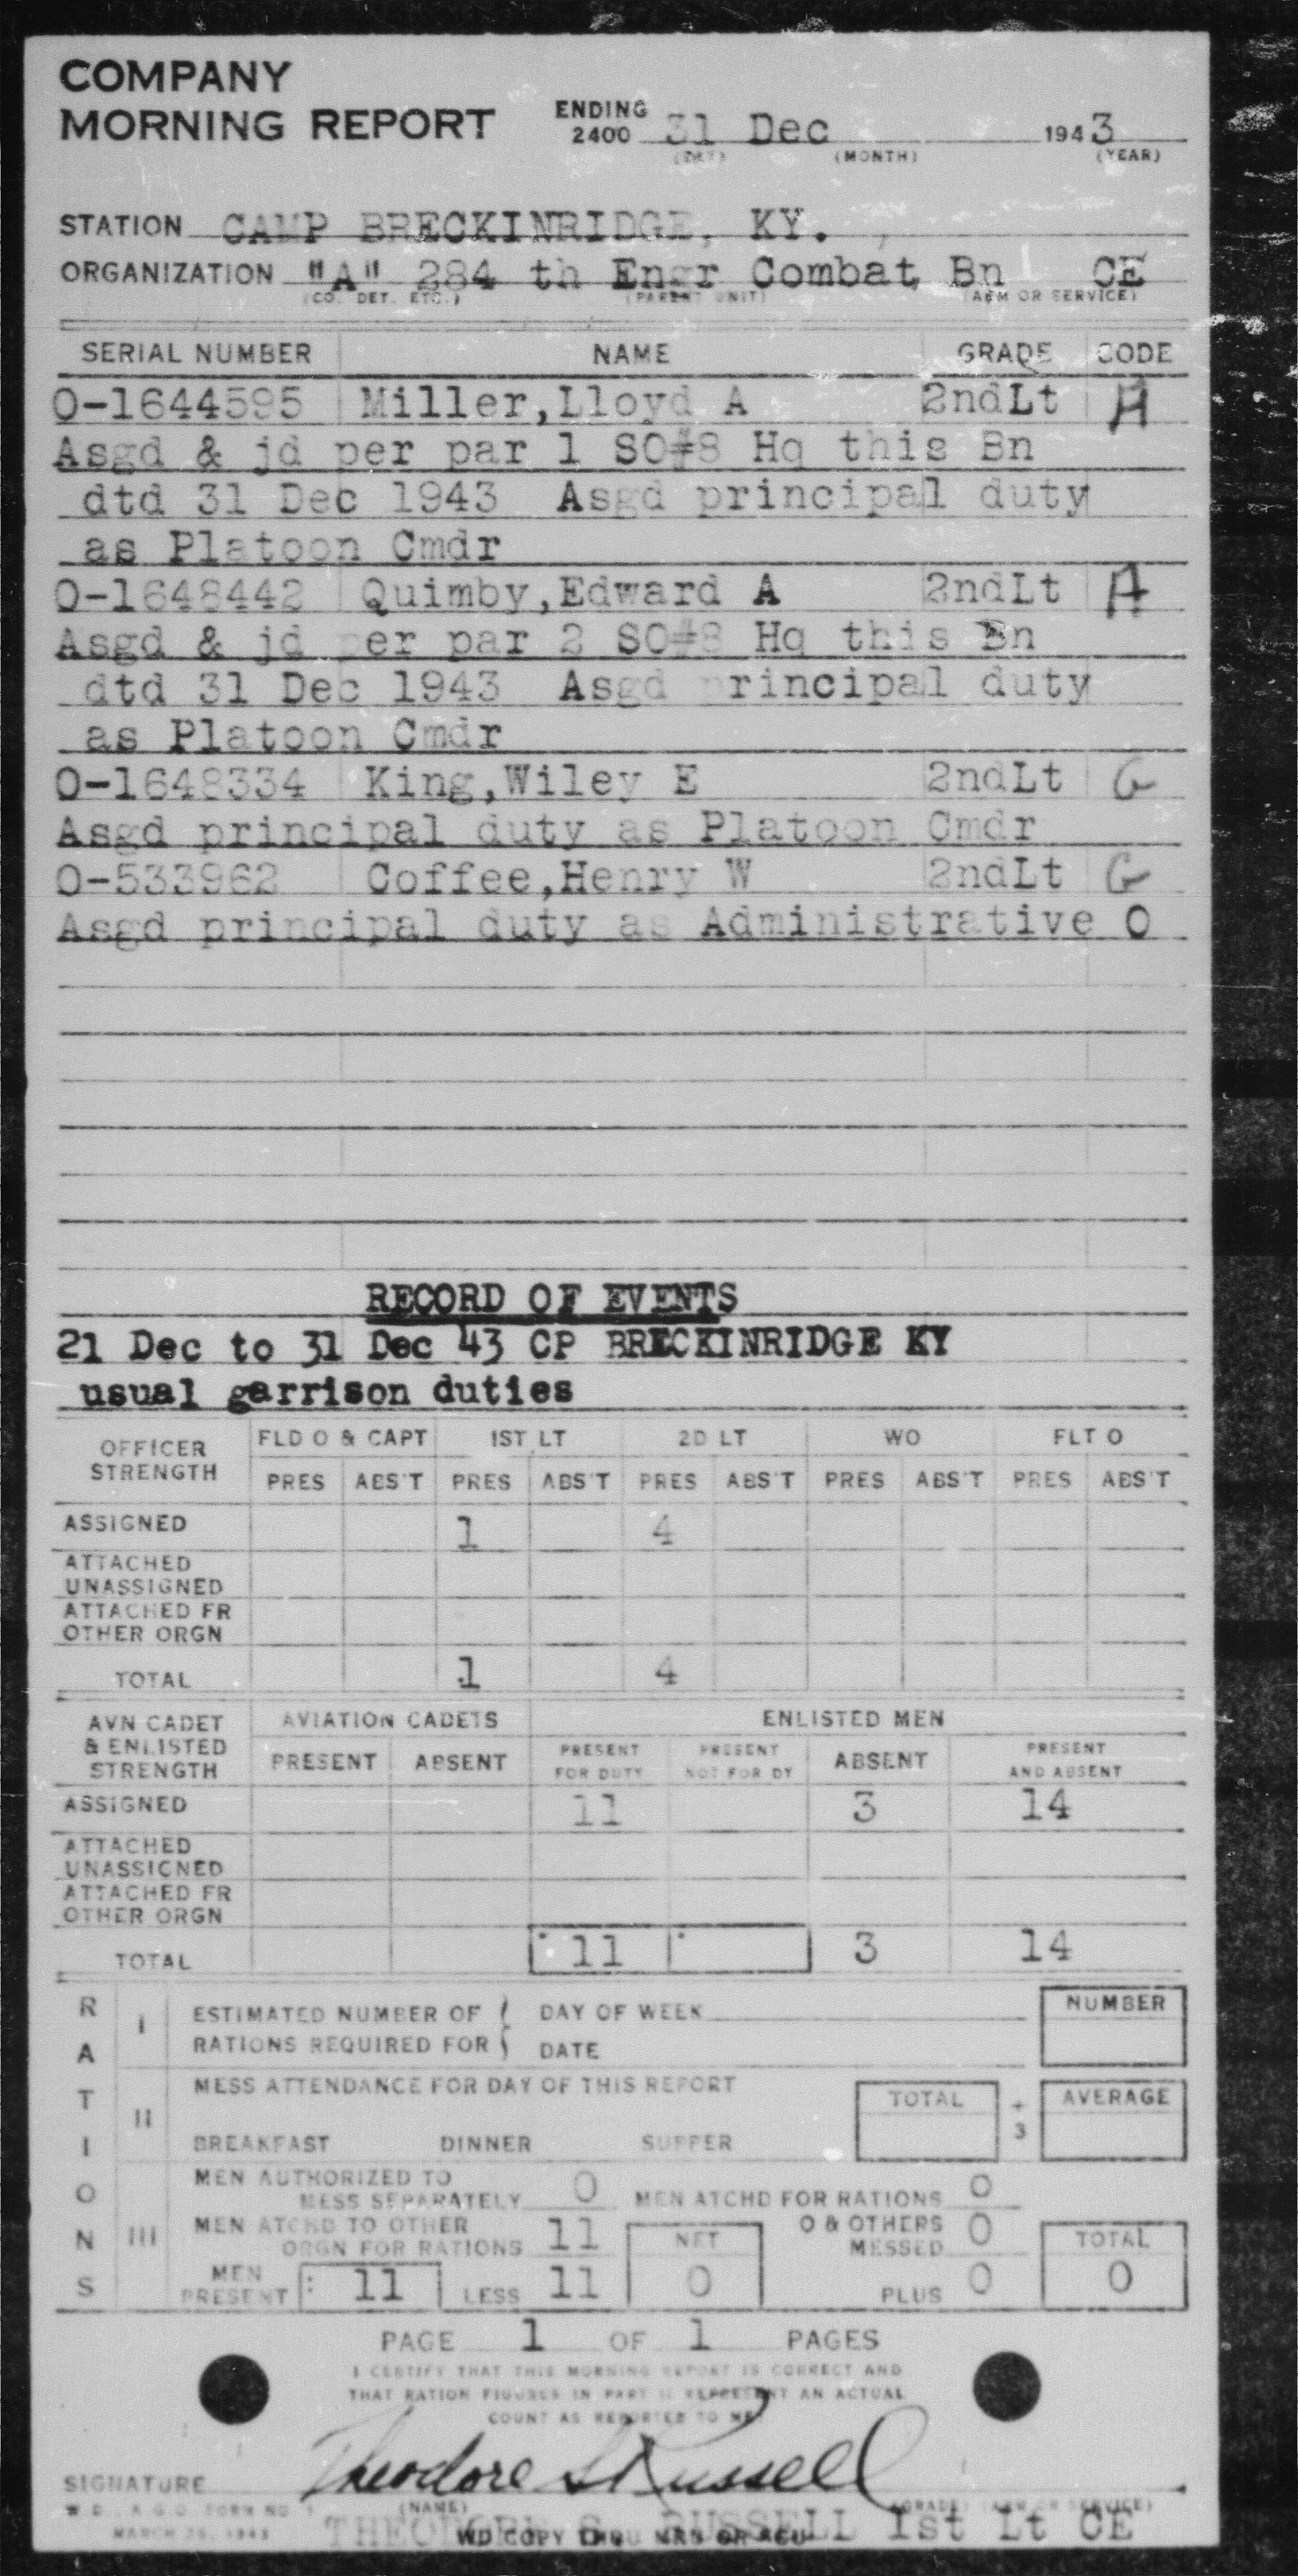 COMPANY
MORNING REPORT ENDING 2400 31 Dec 1943
(DAY) (MONTH) (YEAR)
STATION CAMP BRECKINRIDGE, KY.
ORGANIZATION "A" 284 th Engr Combat Bn CE
(CO. DET. ETC.) (PARENT UNIT) (ARM OR SERVICE)
SERIAL NUMBER NAME GRADE CODE
O-1644595 Miller,Lloyd A 2ndLt A
Asgd & jd per par 1 SO#8 Hq this Bn
dtd 31 Dec 1943 Asgd principal duty
as Platoon Cmdr
O-1648442 Quimby,Edward A 2ndLt A
Asgd & jd per par 2 SO#8 Hq this Bn
dtd 31 Dec 1943 Asgd principal duty
as Platoon Cmdr
O-1648334 King,Wiley E 2ndLt G
Asgd principal duty as Platoon Cmdr
O-533962 Coffee,Henry W 2ndLt G
Asgd principal duty as Administrative O
RECORD OF EVENTS
21 Dec to 31 Dec 43 CP BRECKINRIDGE KY
usual garrison duties
OFFICER STRENGTH FLD O & CAPT 1ST LT 2D LT WO FLT O
PRES ABS'T PRES ABS'T PRES ABS'T PRES ABS'T PRES ABS'T
ASSIGNED 1 4
ATTACHED
UNASSIGNED
ATTACHED FR
OTHER ORGN
TOTAL 1 4
AVN CADET & ENLISTED STRENGTH AVIATION CADETS ENLISTED MEN
PRESENT ABSENT PRESENT FOR DUTY PRESENT NOT FOR DY ABSENT PRESENT AND ABSENT
ASSIGNED 11 3 14
ATTACHED
UNASSIGNED
ATTACHED FR
OTHER ORGN
TOTAL 11 3 14
RATIONS
I ESTIMATED NUMBER OF DAY OF WEEK NUMBER
RATIONS REQUIRED FOR DATE
II MESS ATTENDANCE FOR DAY OF THIS REPORT TOTAL ÷ 3 AVERAGE
BREAKFAST DINNER SUPPER
III MEN AUTHORIZED TO
MESS SEPARATELY 0 MEN ATCHD FOR RATIONS 0
MEN ATCHD TO OTHER
ORGN FOR RATIONS 11 NET O & OTHERS MESSED 0 TOTAL
MEN PRESENT 11 LESS 11 0 PLUS 0 0
PAGE 1 OF 1 PAGES
I CERTIFY THAT THIS MORNING REPORT IS CORRECT AND
THAT RATION FIGURES IN PART II REPRESENT AN ACTUAL
COUNT AS REPORTED TO ME.
SIGNATURE Theodore S Russell
W D., A G O FORM NO 1 (NAME) (GRADE) (ARM OR SERVICE)
MARCH 25, 1943 THEODORE S. RUSSELL 1st Lt CE
WD COPY THRU MRS OR AGU